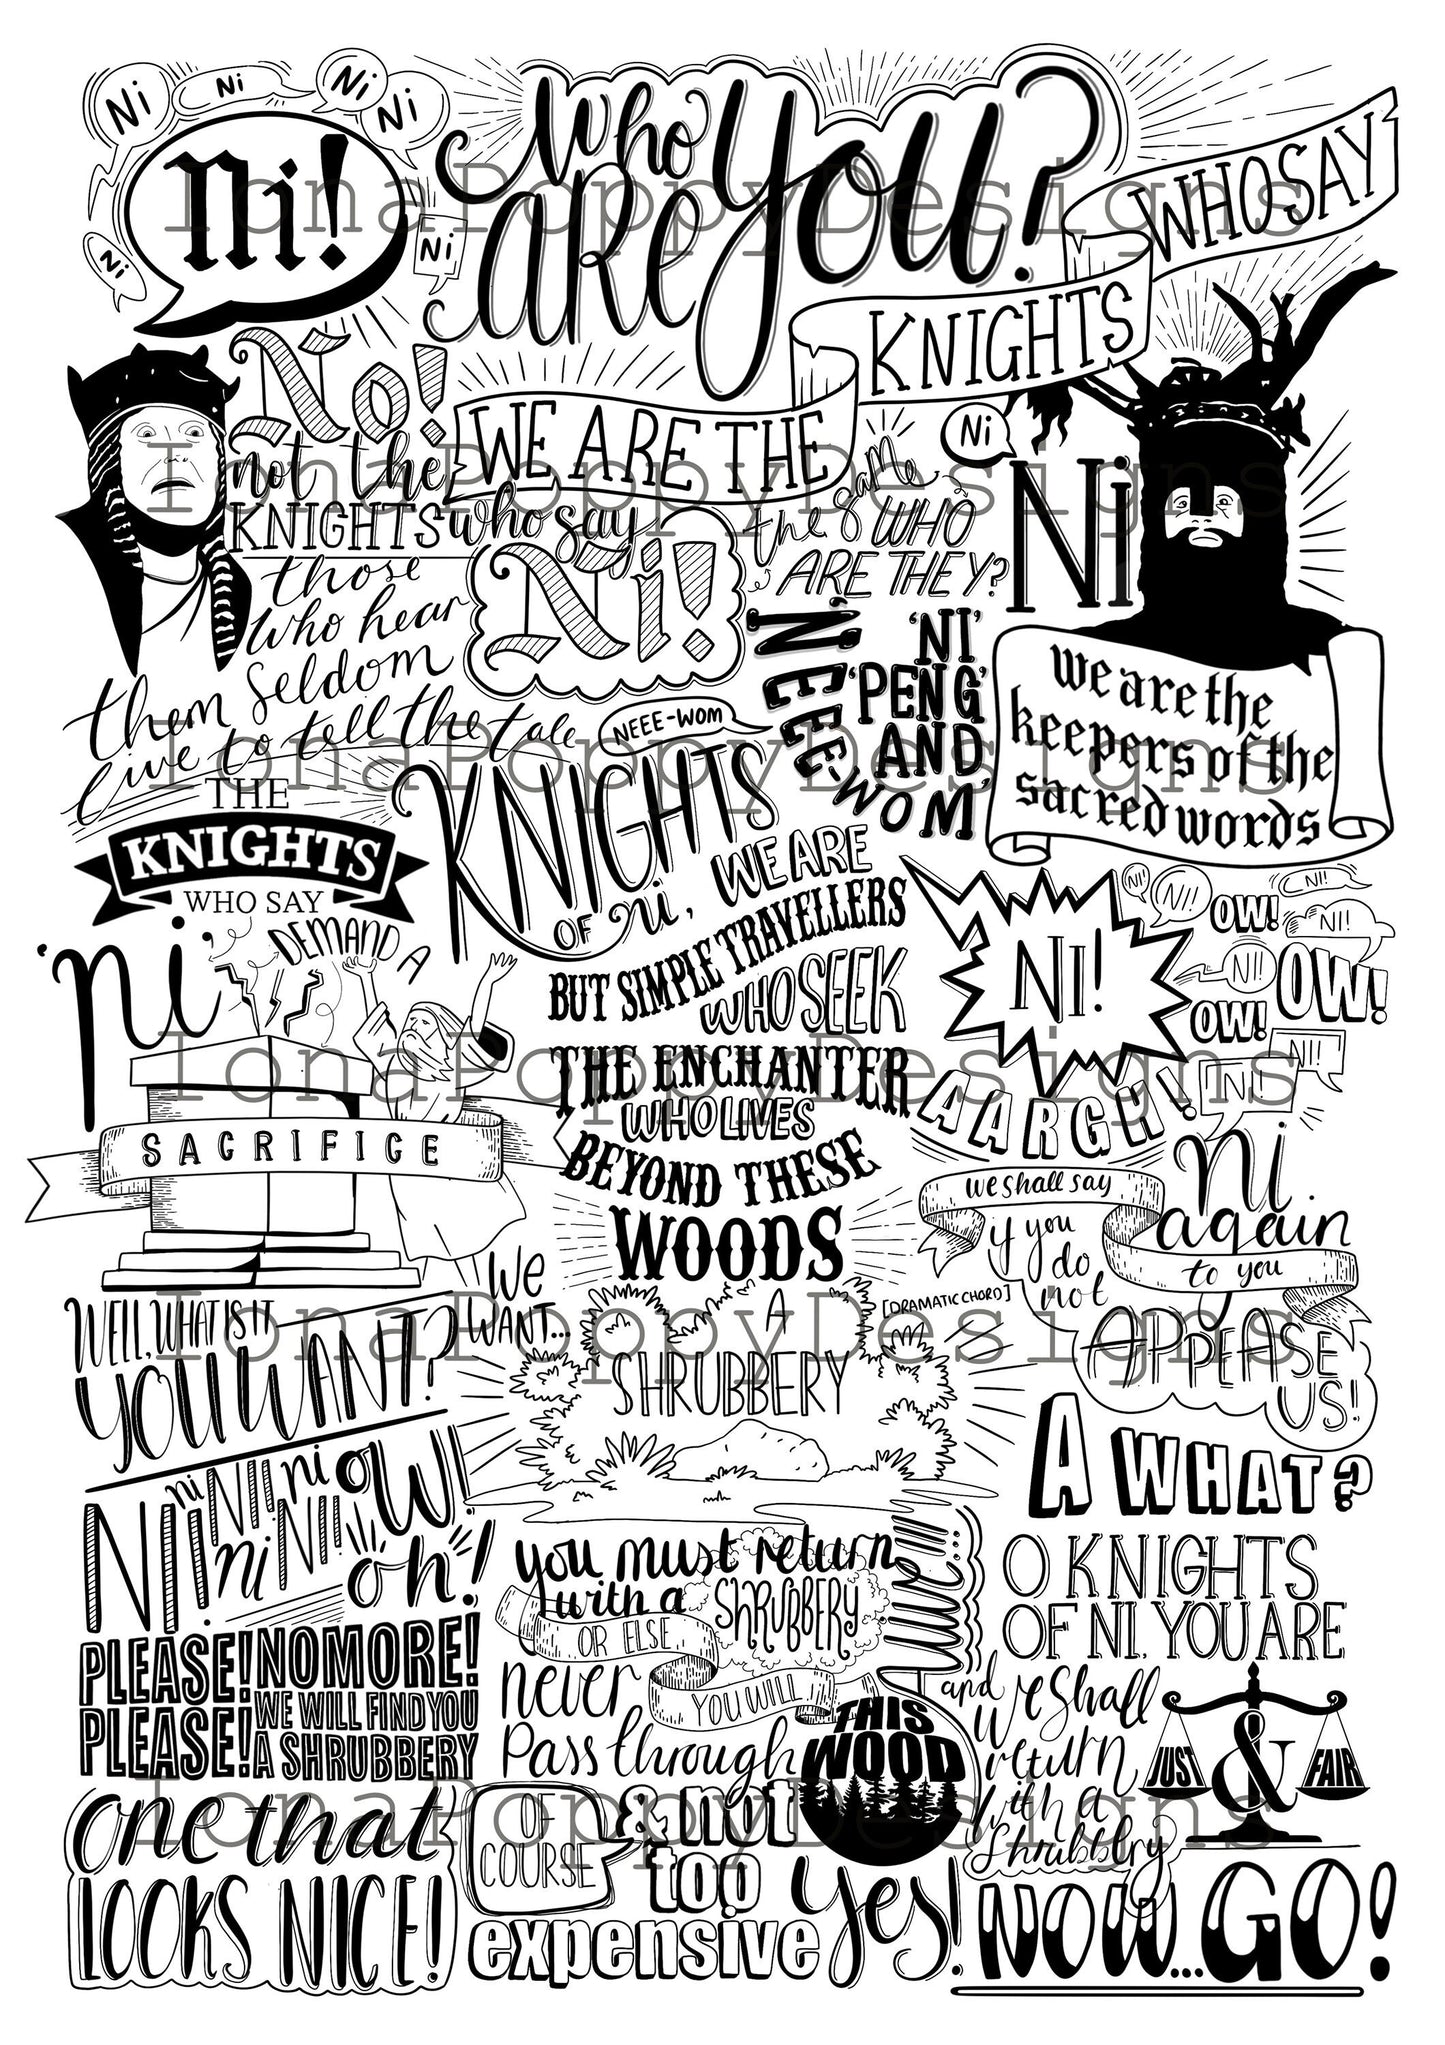 Ni
Ni
Ni
Ni
Ni!
Ni
Ni
who
are you?
IonaPoppyDesigns
WE ARE THE
KNIGHTS
WHO SAY
Ni
Ni
No!
not the
KNIGHTS who say
Ni!
the same
WHO
ARE THEY?
those
who hear
them seldom
live to tell the tale
IonaPoppyDesigns
we are the
keepers of the
sacred words
'NI'
'PENG'
AND
'NEEE-WOM'
NEEE-WOM
IonaPoppyDesigns
THE
KNIGHTS
WHO SAY
'ni'
DEMAND A
SACRIFICE
KNIGHTS
OF Ni,
WE ARE
BUT SIMPLE TRAVELLERS
WHO SEEK
THE ENCHANTER
WHO LIVES
BEYOND THESE
WOODS
NI!
NI!
NI!!
NI!!
NI!!
NI!!
NI!
NI!
OW!
OW!
OW!
AARGH!
IonaPoppyDesigns
we shall say
ni
again
to you
if you
do
not
APPEASE
US!
WELL, WHAT IS IT
YOU WANT?
We
WANT...
A
SHRUBBERY
[DRAMATIC CHORD]
IonaPoppyDesigns
A WHAT?
Nii!
ni
NII
ni
ni
NII!
OW!
oh!
PLEASE!
PLEASE!
NO MORE!
WE WILL FIND YOU
A SHRUBBERY
you must return
with a
SHRUBBERY
OR ELSE
YOU WILL
never
Pass through
THIS
WOOD
Alive...
O KNIGHTS
OF NI, YOU ARE
JUST & FAIR
and
we shall
return
with a
Shrubbery
one that
LOOKS NICE!
OF
COURSE
& not
too
expensive
yes!
NOW...GO!
IonaPoppyDesigns